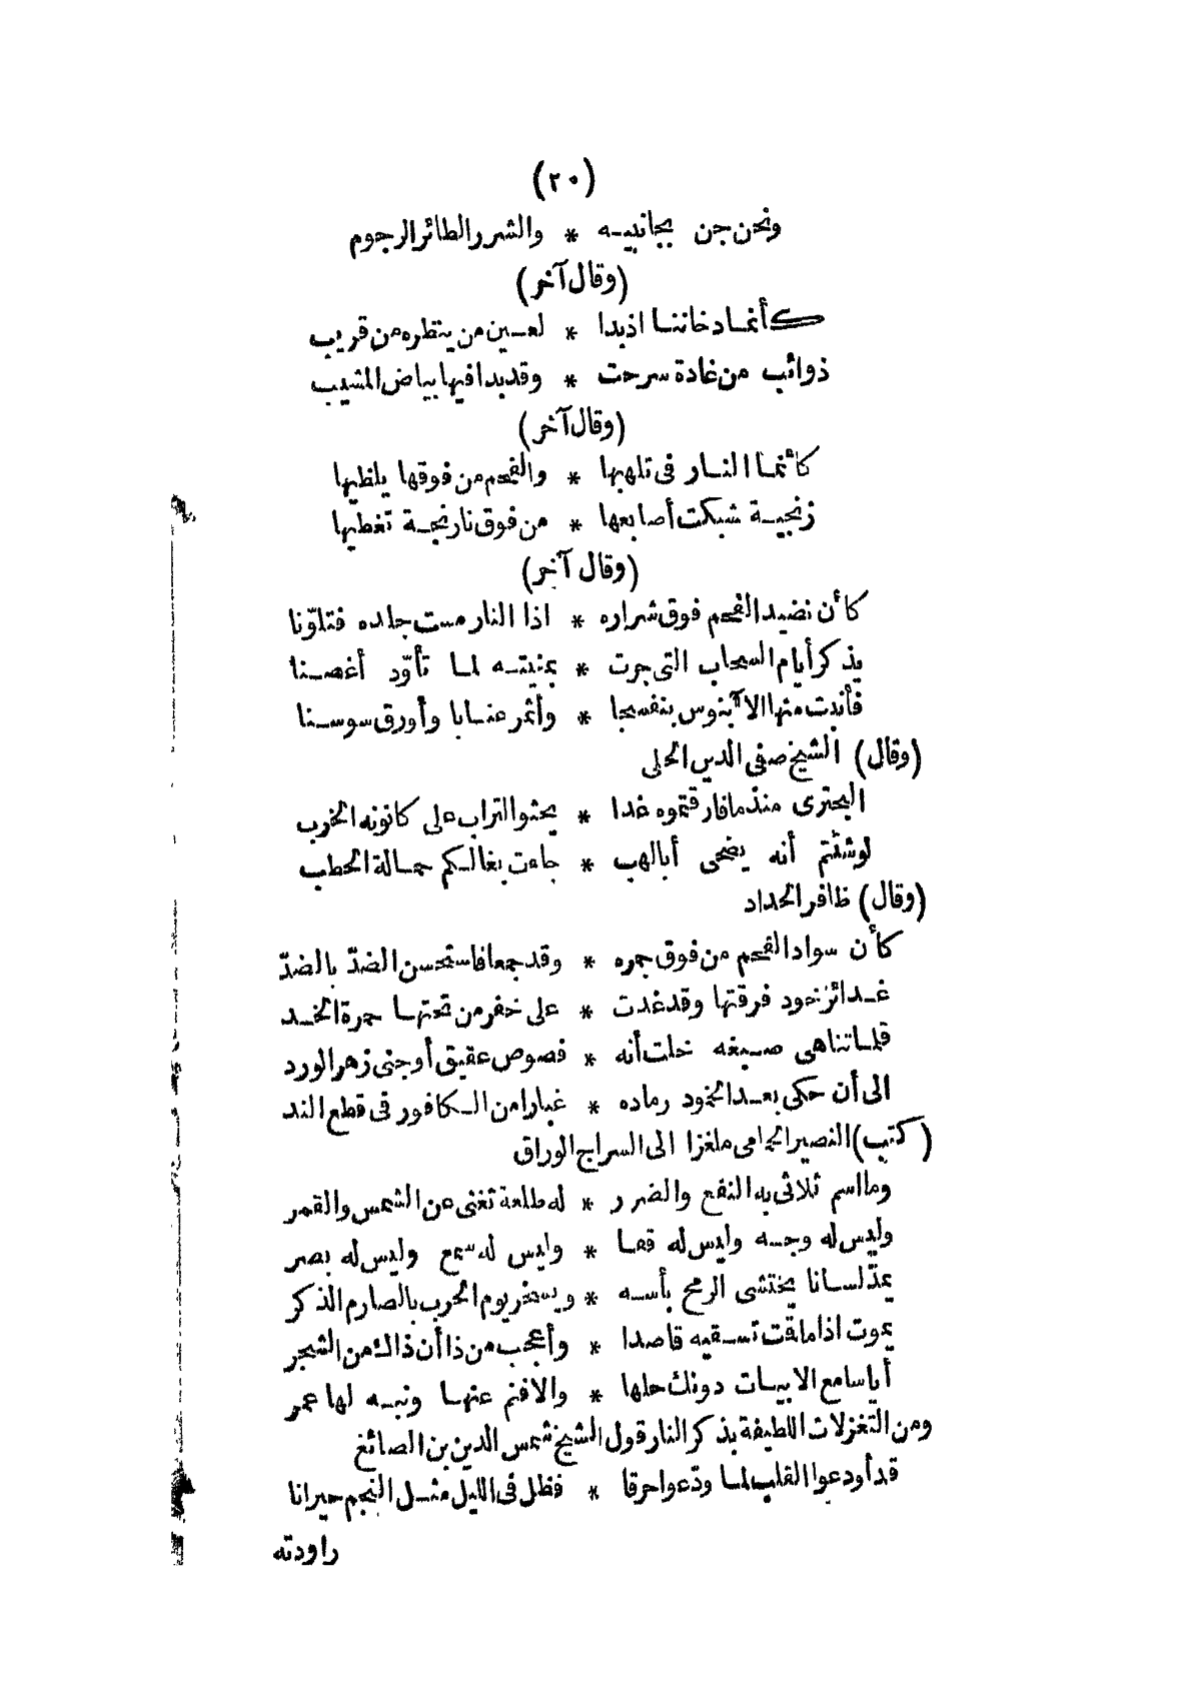 (٢٠)
ونحن جن بجانبيه * والشرر الطائر الرجوم
(وقال آخر)
كأنما دخاننا اذبدا * لعين من ينظره من قريب
ذوائب من غادة سرحت * وقد بدا فيها بياض المشيب
(وقال آخر)
كأنما النار فى تلهبها * والفحم من فوقها يلظيها
زنجية شبكت أصابعها * من فوق نارنجة تغطيها
(وقال آخر)
كأن نضيد الفحم فوق شراره * اذا النار مست جلده فتلوّنا
يذكر أيام السحاب التى جرت * بمنبته لما تأوّد أغصنا
فأنبت منها الآبنوس بنفسجا * وأثمر عنابا وأورق سوسنا
(وقال) الشيخ صفى الدين الحلى
البحترى منذ مافارقتموه غدا * يحثو التراب على كانونه الخرب
لوشئتم أنه يضحى أبالهب * جاءت بغالكم حمالة الحطب
(وقال) ظافر الحداد
كأن سواد الفحم من فوق جمره * وقد جمعا فاستحسن الضدّ بالضدّ
غدائر خود فرقتها وقد غدت * على خفر من تحتها حمرة الخد
فلما تناهى صبغه خلت أنه * فصوص عقيق أو جنى زهر الورد
الى أن حكى بعد الخمود رماده * غبارا من الكافور فى قطع الند
(كتب) النصير الحامى ملغزا الى السراج الوراق
وما اسم ثلاثى به النفع والضرر * له طلعة تغنى عن الشمس والقمر
وليس له وجه وليس له قفا * وليس له سمع وليس له بصر
يمدّ لسانا يختشى الرمح بأسه * ويسخر يوم الحرب بالصارم الذكر
يموت اذا ماقت تسقيه قاصدا * وأعجب من ذا أن ذاك من الشجر
أيا سامع الابيات دونك حلها * والا فنم عنها ونبه لها عمر
ومن التغزلات اللطيفة بذكر النار قول الشيخ شمس الدين بن الصائغ
قد أودعوا القلب لما ودّعوا حرقا * فظل فى الليل مثل النجم حيرانا
راودته